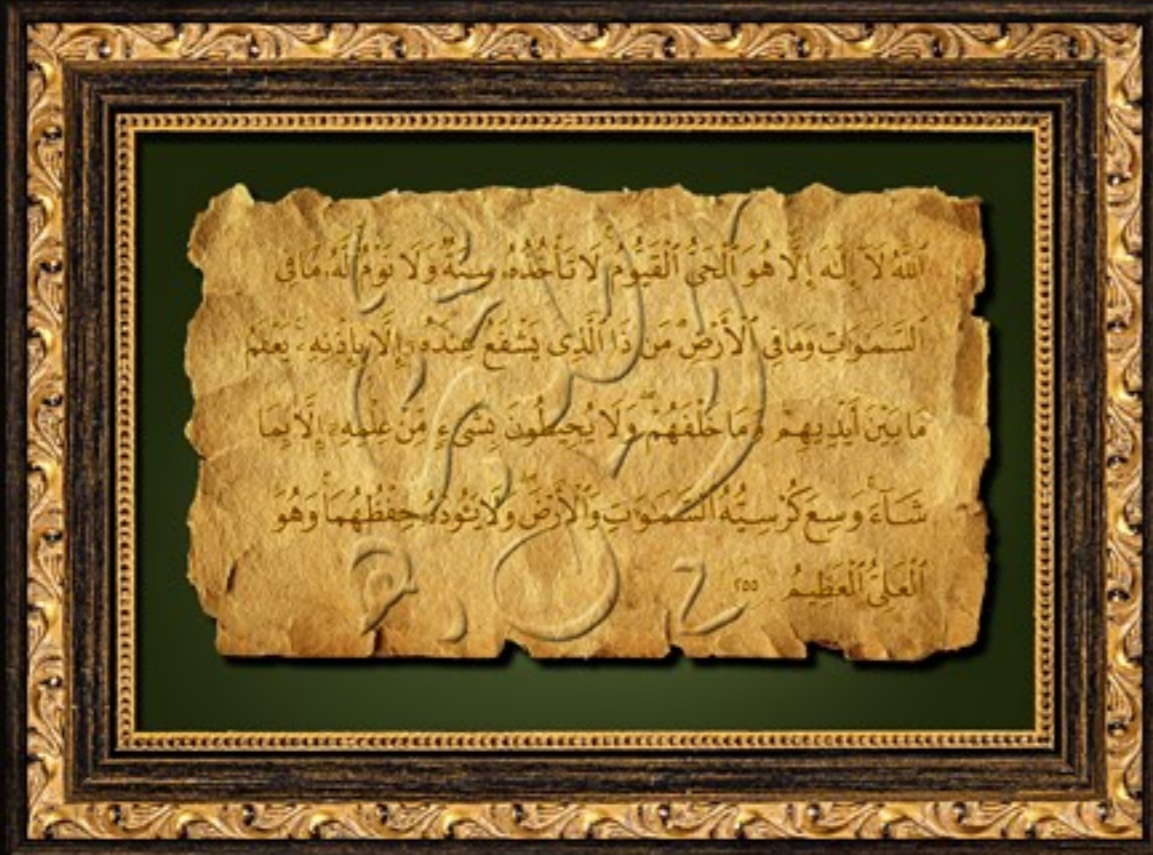 ٱللَّهُ لَآ إِلَٰهَ إِلَّا هُوَ ٱلْحَىُّ ٱلْقَيُّومُ ۚ لَا تَأْخُذُهُۥ سِنَةٌ وَلَا نَوْمٌ ۚ لَّهُۥ مَا فِى
ٱلسَّمَٰوَٰتِ وَمَا فِى ٱلْأَرْضِ ۗ مَن ذَا ٱلَّذِى يَشْفَعُ عِندَهُۥٓ إِلَّا بِإِذْنِهِۦ ۚ يَعْلَمُ
مَا بَيْنَ أَيْدِيهِمْ وَمَا خَلْفَهُمْ ۖ وَلَا يُحِيطُونَ بِشَىْءٍ مِّنْ عِلْمِهِۦٓ إِلَّا بِمَا
شَآءَ ۚ وَسِعَ كُرْسِيُّهُ ٱلسَّمَٰوَٰتِ وَٱلْأَرْضَ ۖ وَلَا يَـُٔودُهُۥ حِفْظُهُمَا ۚ وَهُوَ
ٱلْعَلِىُّ ٱلْعَظِيمُ ٢٥٥